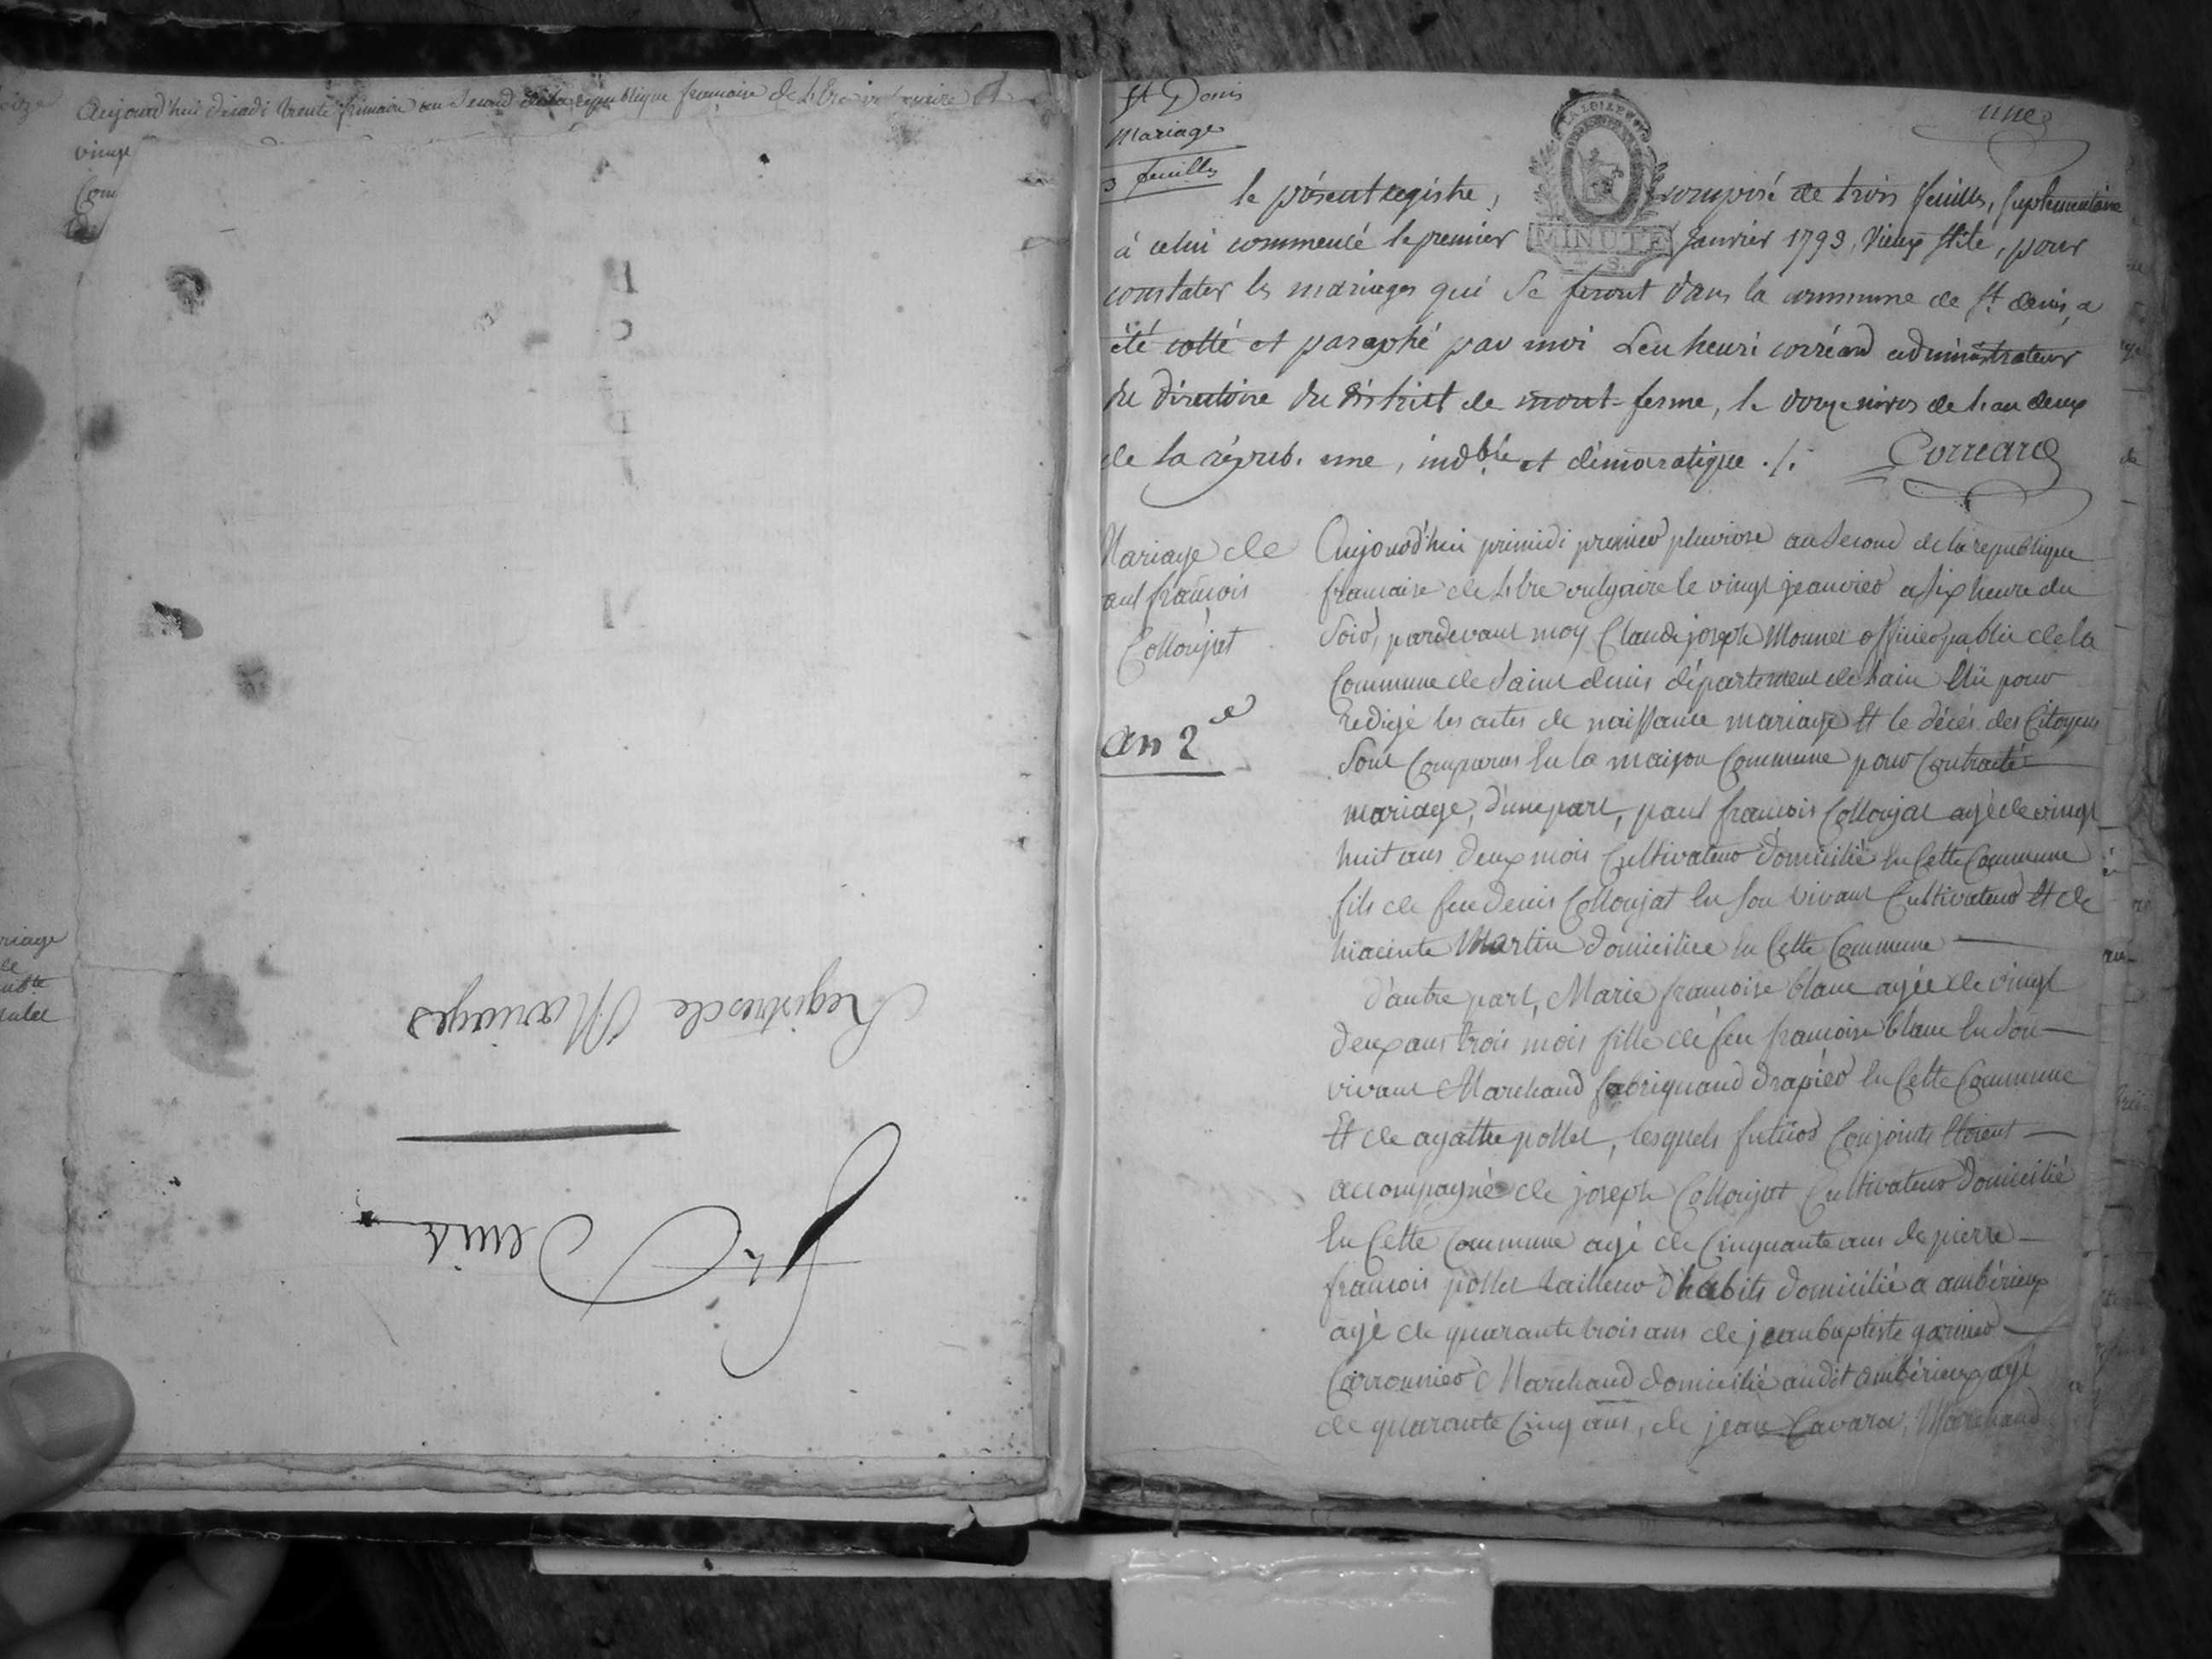 Aujourd'hui decadi trente frimaire an second de la republique francaise de l'Ere vulgaire
vingt
Com
de
Registres de Mariages
St Denis
St Denis
Mariage
3 feuilles
une
le présent registre, composé de trois feuilles, suplementaire
MINUTE
à celui commencé le premier Janvier 1793, vieux stile, pour
constater les mariages qui se feront dans la commune de St denis, a
été cotté et paraphé par moi Leu henri corréard administrateur
du directoire du district de mont-ferme, le onze nivos de l'an deux
de la répub. une, indble et démocratique ./.
Correard
Mariage de
aul francois
Collonjat
an 2e
Aujourd'hui primidi premier pluviose an second de la republique
francaise de l'Ere vulgaire le vingt jeanvier a six heure du
Soir, pardevant moy Claude joseph Monnet officier public de la
Commune de Saint denis département de Lain Elü pour
redigé les actes de naissance mariage Et le décès des Citoyens
Sont Comparus En la maison Commune pour Contracté
mariage, d'une part, paul francois Collonjat agé de vingt
huit ans deux mois Cultivateur domicilié En Cette Commune
fils de feu denis Collonjat En Son vivant Cultivateur Et de
hiacinte Martin domiciliee En Cette Commune
d'autre part, Marie francoise blanc agée de vingt
deux ans trois mois fille de feu francoise blanc En Son
vivant Marchand fabriquand drapier En Cette Commune
Et de agathe pollet, lesquels futurs Conjoints Etoient
accompagné de joseph Collonjat Cultivateur domicilié
En Cette Commune agé de Cinquante ans de pierre
francois pollet tailleur d'habits domicilié a ambérieux
agé de quarante trois ans de jean baptiste garnier
Marchand domicilié audit Ambérieux agé
de quarante Cinq ans, de jean Cavard, Marchand